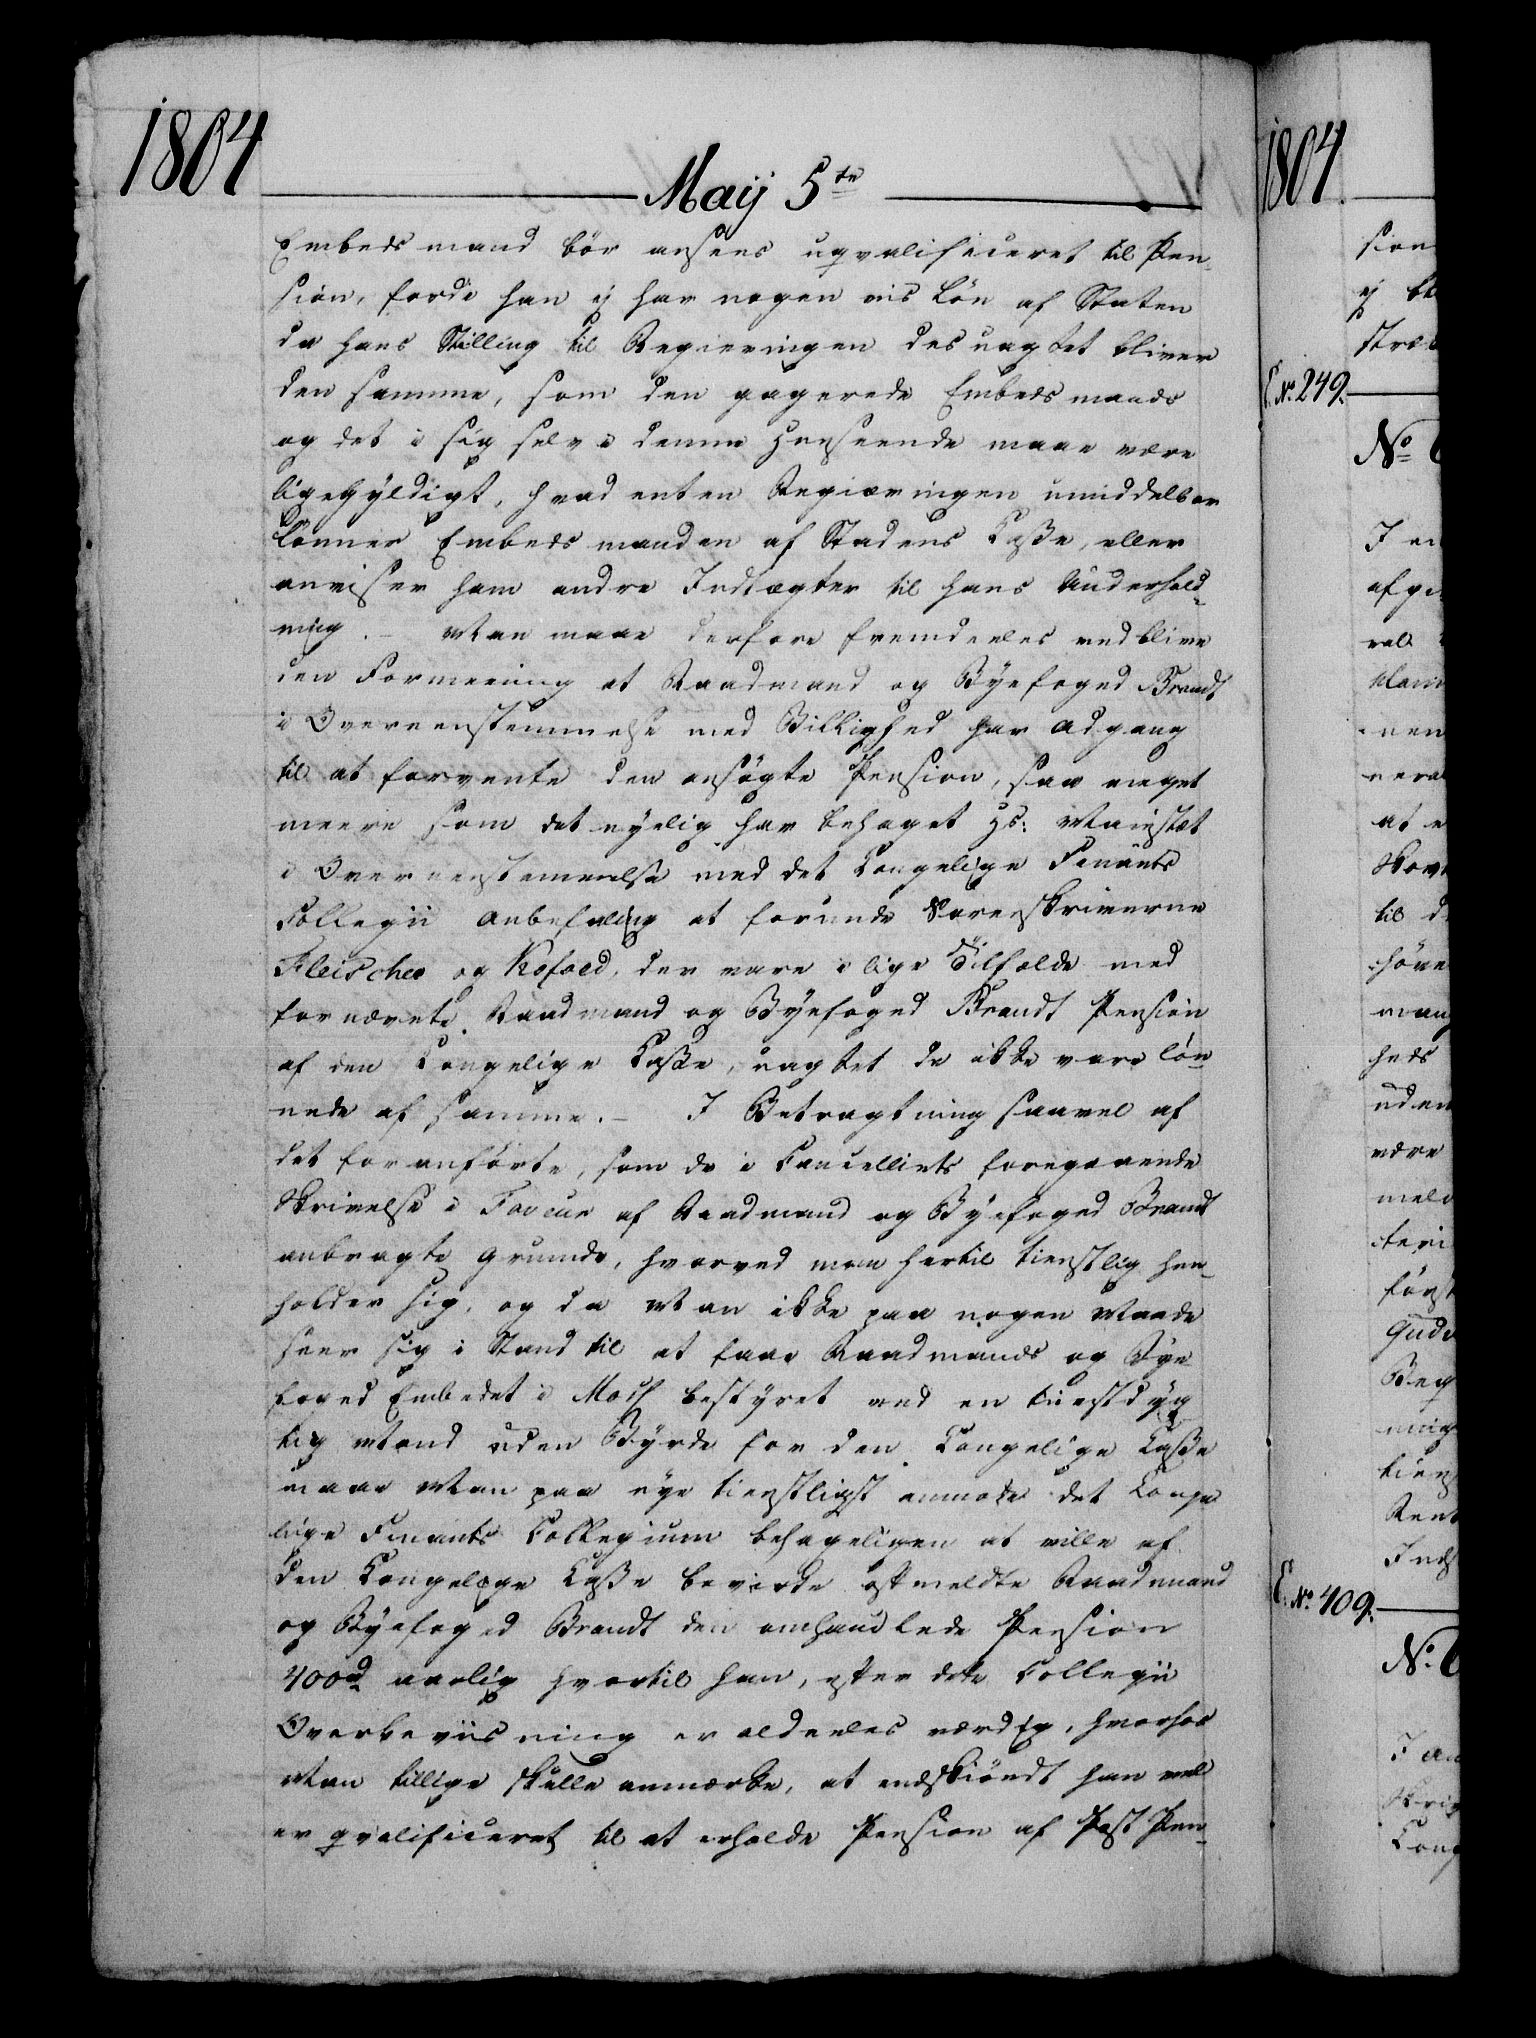 1804
Maij 5te
Embedsmand bör ansees uqvalificeret til Pen-
sion, fordi han ej har nogen vis Lön af Staten
da hans Stilling til Regieringen desuagtet bliver
den samme, som den gagerede Embedsmands
og det i sig selv i denne Henseende maae være
ligegyldigt, hvad enten Regieringen umiddelbar
lönner Embedsmanden af Stadens Casse, eller
anviser ham andre Indtægter til hans Underhold-
ning. - Man maae derfore fremdeeles vedblive
den Formeening at Raadmand og Byefoged Brandt
i Overeenstemmelse med Billighed har Adgang
til at forvente den ansögte Pension, saa meget
meere som det nyelig har behaget Hs: Maiestæt
i Overeenstemmelse med det Kongelige Finants
Collegii Anbefaling at forunde Sorenskriverne
Fleischer og Kofoed, der vare i lige Tilfælde med
fornævnte Raadmand og Byefoged Brandt Pension
af den Kongelige Casse, uagtet de ikke vare lön-
nede af samme. - I Betragtning saavel af
det foranförte, som de i Cancelliets foregaaende
Skrivelse i Faveur af Raadmand og Byefoged Brandt
anbragte Grunde, hvorved man hertil tienstlig hen-
holder sig, og da Man ikke paa nogen Maade
seer sig i Stand til at faae Raadmands og Bye
foged Embedet i Moss bestyret ved en tienstdyg
tig Mand uden Byrde for den Kongelige Casse
maae Man paa nye tienstligst anmode det Konge
lige Finants Collegium behageligen at ville af
den Kongelige Casse bevirke oftmeldte Raadmand
og Byefoged Brandt den omhandlede Pension
400rd aarlig hvortil han, efter dette Collegii
Overbeviisning er aldeeles værdig, hvorhos
Man tillige skulle anmærke, at endskiöndt han vel
er qvalificeret til at erholde Pension af Post Pen-
1804
sion
ej
E. No. 249.
No
at
til
heds
uden
være
först
Beg
E. No. 409.
No.